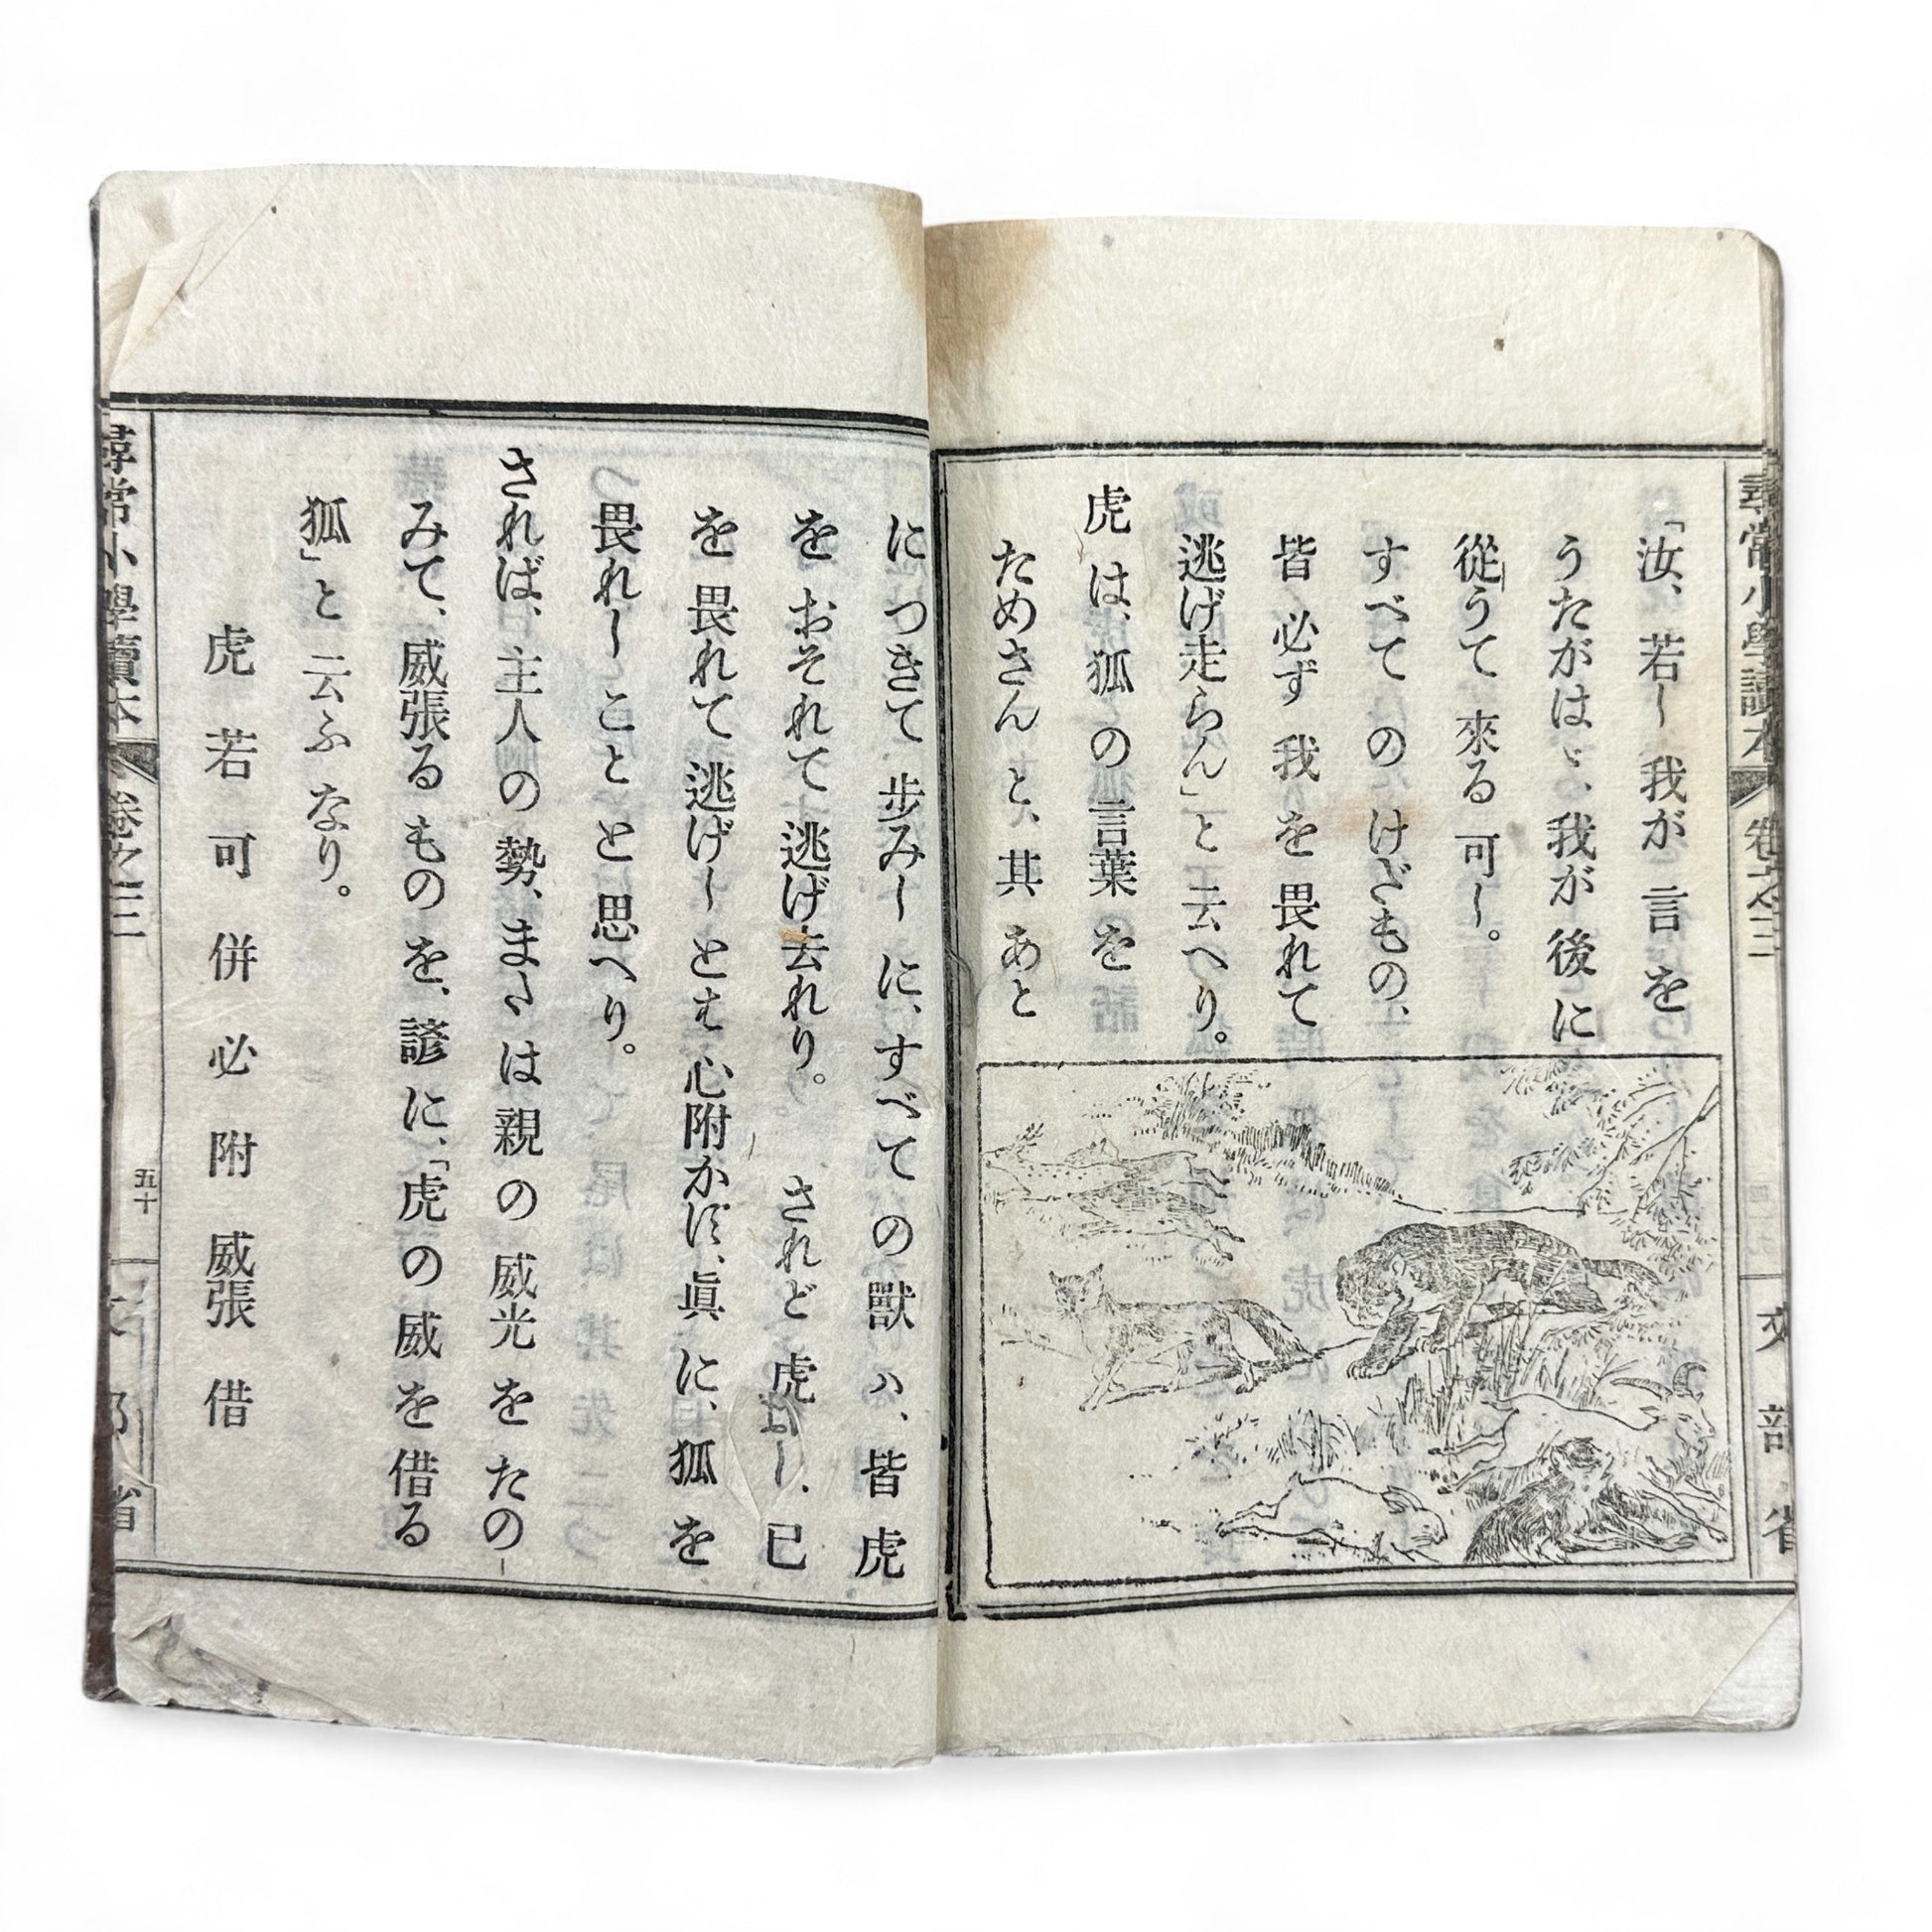 尋常小學讀本 卷之三 文部省
「汝、若し 我が 言 を
うたがはゞ、我が 後 に
從うて 來る 可し。
すべて の けだもの、
皆 必ず 我 を 畏れて
逃げ走らん」と 云へり。
虎 は、狐 の 言葉 を
ためさん と、其 あと
に つきて 歩みし に、すべて の 獸 ハ、皆 虎
を おそれて 逃げ去れり。 されど 虎 は、己
を 畏れて 逃げし とも 心附かず、眞 に、狐 を
畏れし こと と 思へり。
されば、主人 の 勢、また は 親 の 威光 を たの
みて、威張る もの を、諺 に、「虎 の 威 を 借る
狐」と 云ふ なり。
虎 若 可 併 必 附 威張 借
尋常小學讀本 卷之三 五十 文部省